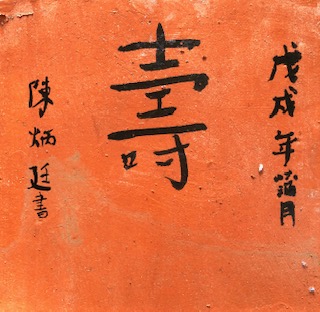 戊戌年月
壽
陳炳廷書